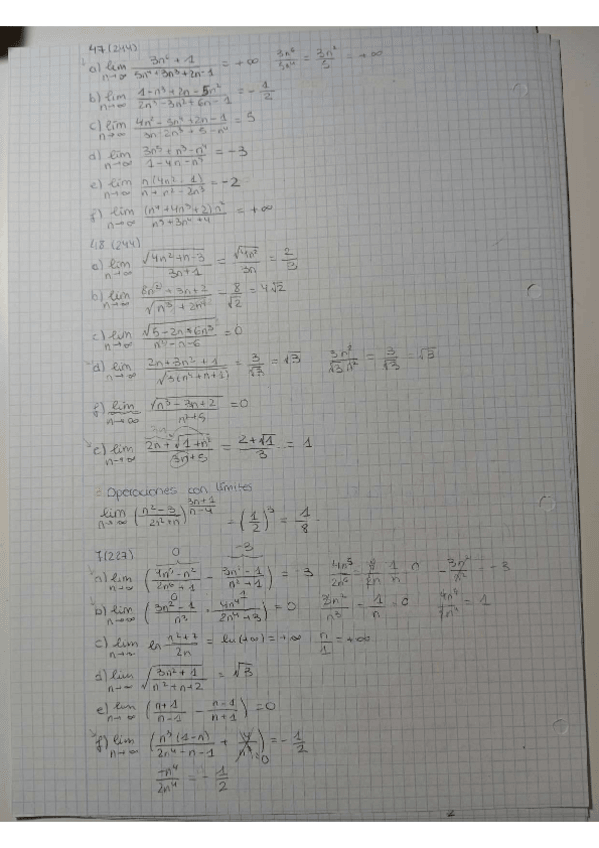 47 (244)
a) lim n→∞ (3n⁶ + 1)/(5n⁴ + 3n³ + 2n - 1) = +∞   3n⁶/5n⁴ = 3n²/5 = +∞
b) lim n→∞ (1 - n³ + 2n - 5n²)/(2n³ - 3n² + 6n - 1) = -1/2
c) lim n→∞ = 5
d) lim n→∞ (3n⁵ + n³ - n⁴)/(1 - 4n - n⁵) = -3
e) lim n→∞ = -2
f) lim n→∞ (n⁴ + 4n³ + 2)n²/(n⁵ + 3n⁴ + 4) = +∞
48 (244)
a) lim n→∞ √(4n² + n - 3)/(3n + 1) = √(4n²)/3n = 2/3
b) lim n→∞ (8n² + 3n + 2)/√(n³ + 2n⁴) = 8/√2 = 4√2
c) lim n→∞ √(5 - 2n + 6n³)/(n⁴ - n - 6) = 0
d) lim n→∞ (2n + 3n² + 1)/√(3(n⁴ + n + 1)) = 3/√3 = √3   3n²/√3n² = 3/√3 = √3
f) lim n→∞ √(n³ - 3n + 2)/(n² + 5) = 0
e) lim n→∞ (2n + √(1 + n²))/(3n + 5) = (2 + √1)/3 = 1
Operaciones con límites
lim n→∞ ((n² - 3)/(2n² + n))^((3n + 1)/(n - 4)) = (1/2)³ = 1/8
7 (227)   0   -3
a) lim n→∞ = -3   -3n²/n² = -3
b) lim n→∞ ((3n² - 1)/n³ · 4n⁴/(2n⁴ + 3)) = 0   3n²/n³ = 1/n = 0
c) lim n→∞ ln (n² + 7)/2n = ln(+∞) = +∞   n/1 = +∞
d) lim n→∞ √((3n² + 1)/(n² + n + 2)) = √3
e) lim n→∞ ((n + 1)/(n - 1) - (n - 1)/(n + 1)) = 0
f) lim n→∞ (n³(1 - n)/(2n⁴ - n - 1) + ) = -1/2
-n⁴/2n⁴ = -1/2